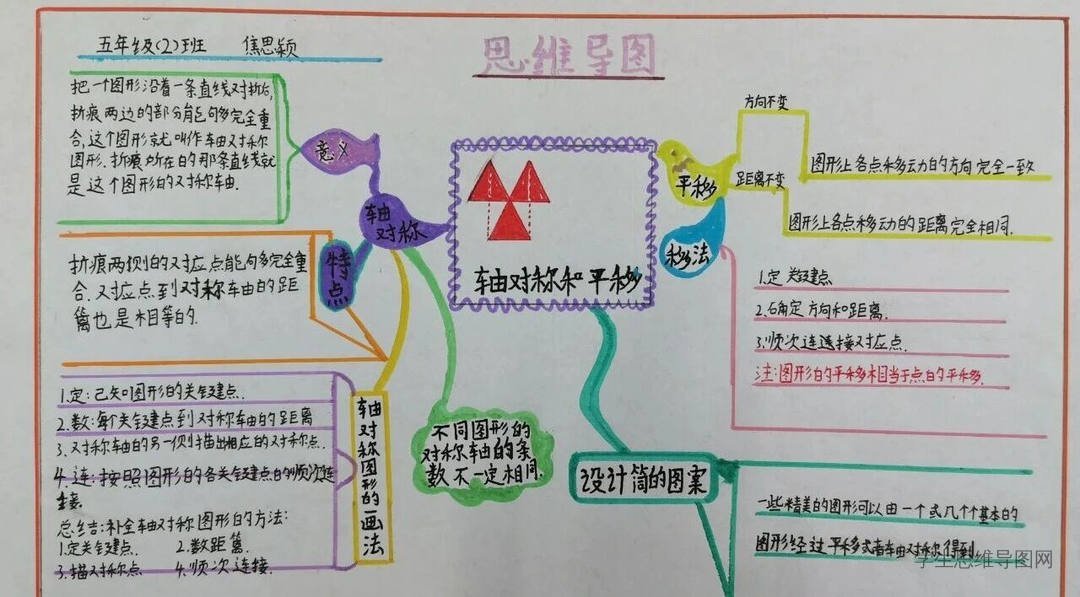 五年级(2)班 焦思颖
思维导图
把一个图形沿着一条直线对折后,
折痕两边的部分能够完全重
合,这个图形就叫作轴对称
图形.折痕所在的那条直线就
是这个图形的对称轴.
意义
轴
对称
特
点
折痕两侧的对应点能够完全重
合.对应点到对称轴的距
离也是相等的.
1.定:已知图形的关键点.
2.数:每个关键点到对称轴的距离
3.对称轴的另一侧描出相应的对称点.
4.连:按照图形的各关键点的顺次连
接.
总结:补全轴对称图形的方法:
1.定关键点. 2.数距离.
3.描对称点 4.顺次连接.
轴对称图形的画法
不同图形的
对称轴的条
数不一定相同.
轴对称和平移
平移
方向不变
图形上各点移动的方向完全一致
距离不变
图形上各点移动的距离完全相同.
移法
1.定关键点
2.确定方向和距离.
3.顺次连接对应点.
注:图形的平移相当于点的平移.
设计简的图案
一些精美的图形可以由一个或几个个基本的
图形经过平移或者轴对称得到.
学生思维导图网